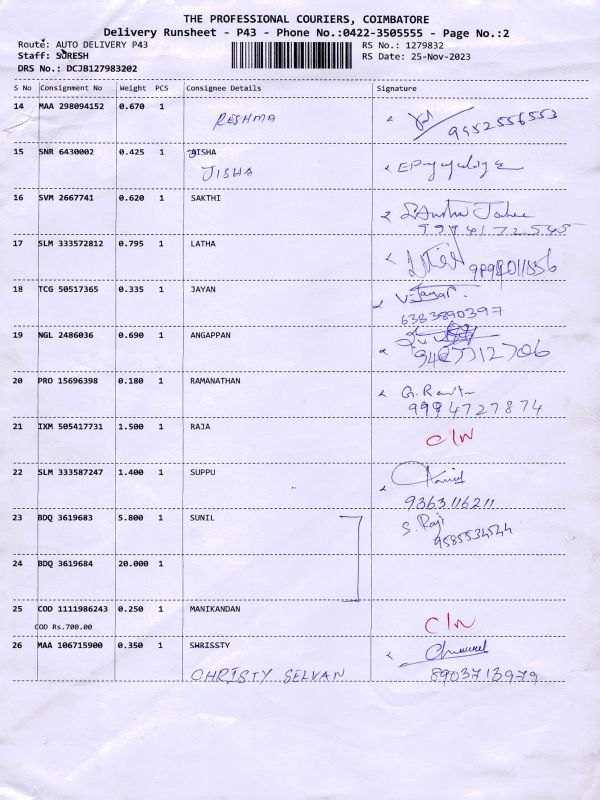 THE PROFESSIONAL COURIERS, COIMBATORE
Delivery Runsheet - P43 - Phone No.:0422-3505555 - Page No.:2
Route: AUTO DELIVERY P43 RS No.: 1279832
Staff: SURESH RS Date: 25-Nov-2023
DRS No.: DCJB127983202
S No Consignment No Weight PCS Consignee Details Signature
14 MAA 298094152 0.670 1 RESHMA
9952556553
15 SNR 6430002 0.425 1 JISHA
JISHA
16 SVM 2667741 0.620 1 SAKTHI
17 SLM 333572812 0.795 1 LATHA
18 TCG 50517365 0.335 1 JAYAN Vijayar.
6383890397
19 NGL 2486036 0.690 1 ANGAPPAN
20 PRO 15696398 0.180 1 RAMANATHAN
9994727874
21 IXM 505417731 1.500 1 RAJA C/N
22 SLM 333587247 1.400 1 SUPPU
9363116211
23 BDQ 3619683 5.800 1 SUNIL S. Raji
9585534544
24 BDQ 3619684 20.000 1
25 COD 1111986243 0.250 1 MANIKANDAN C/N
COD Rs.700.00
26 MAA 106715900 0.350 1 SHRISSTY
CHRISTY SELVAN 8903713979